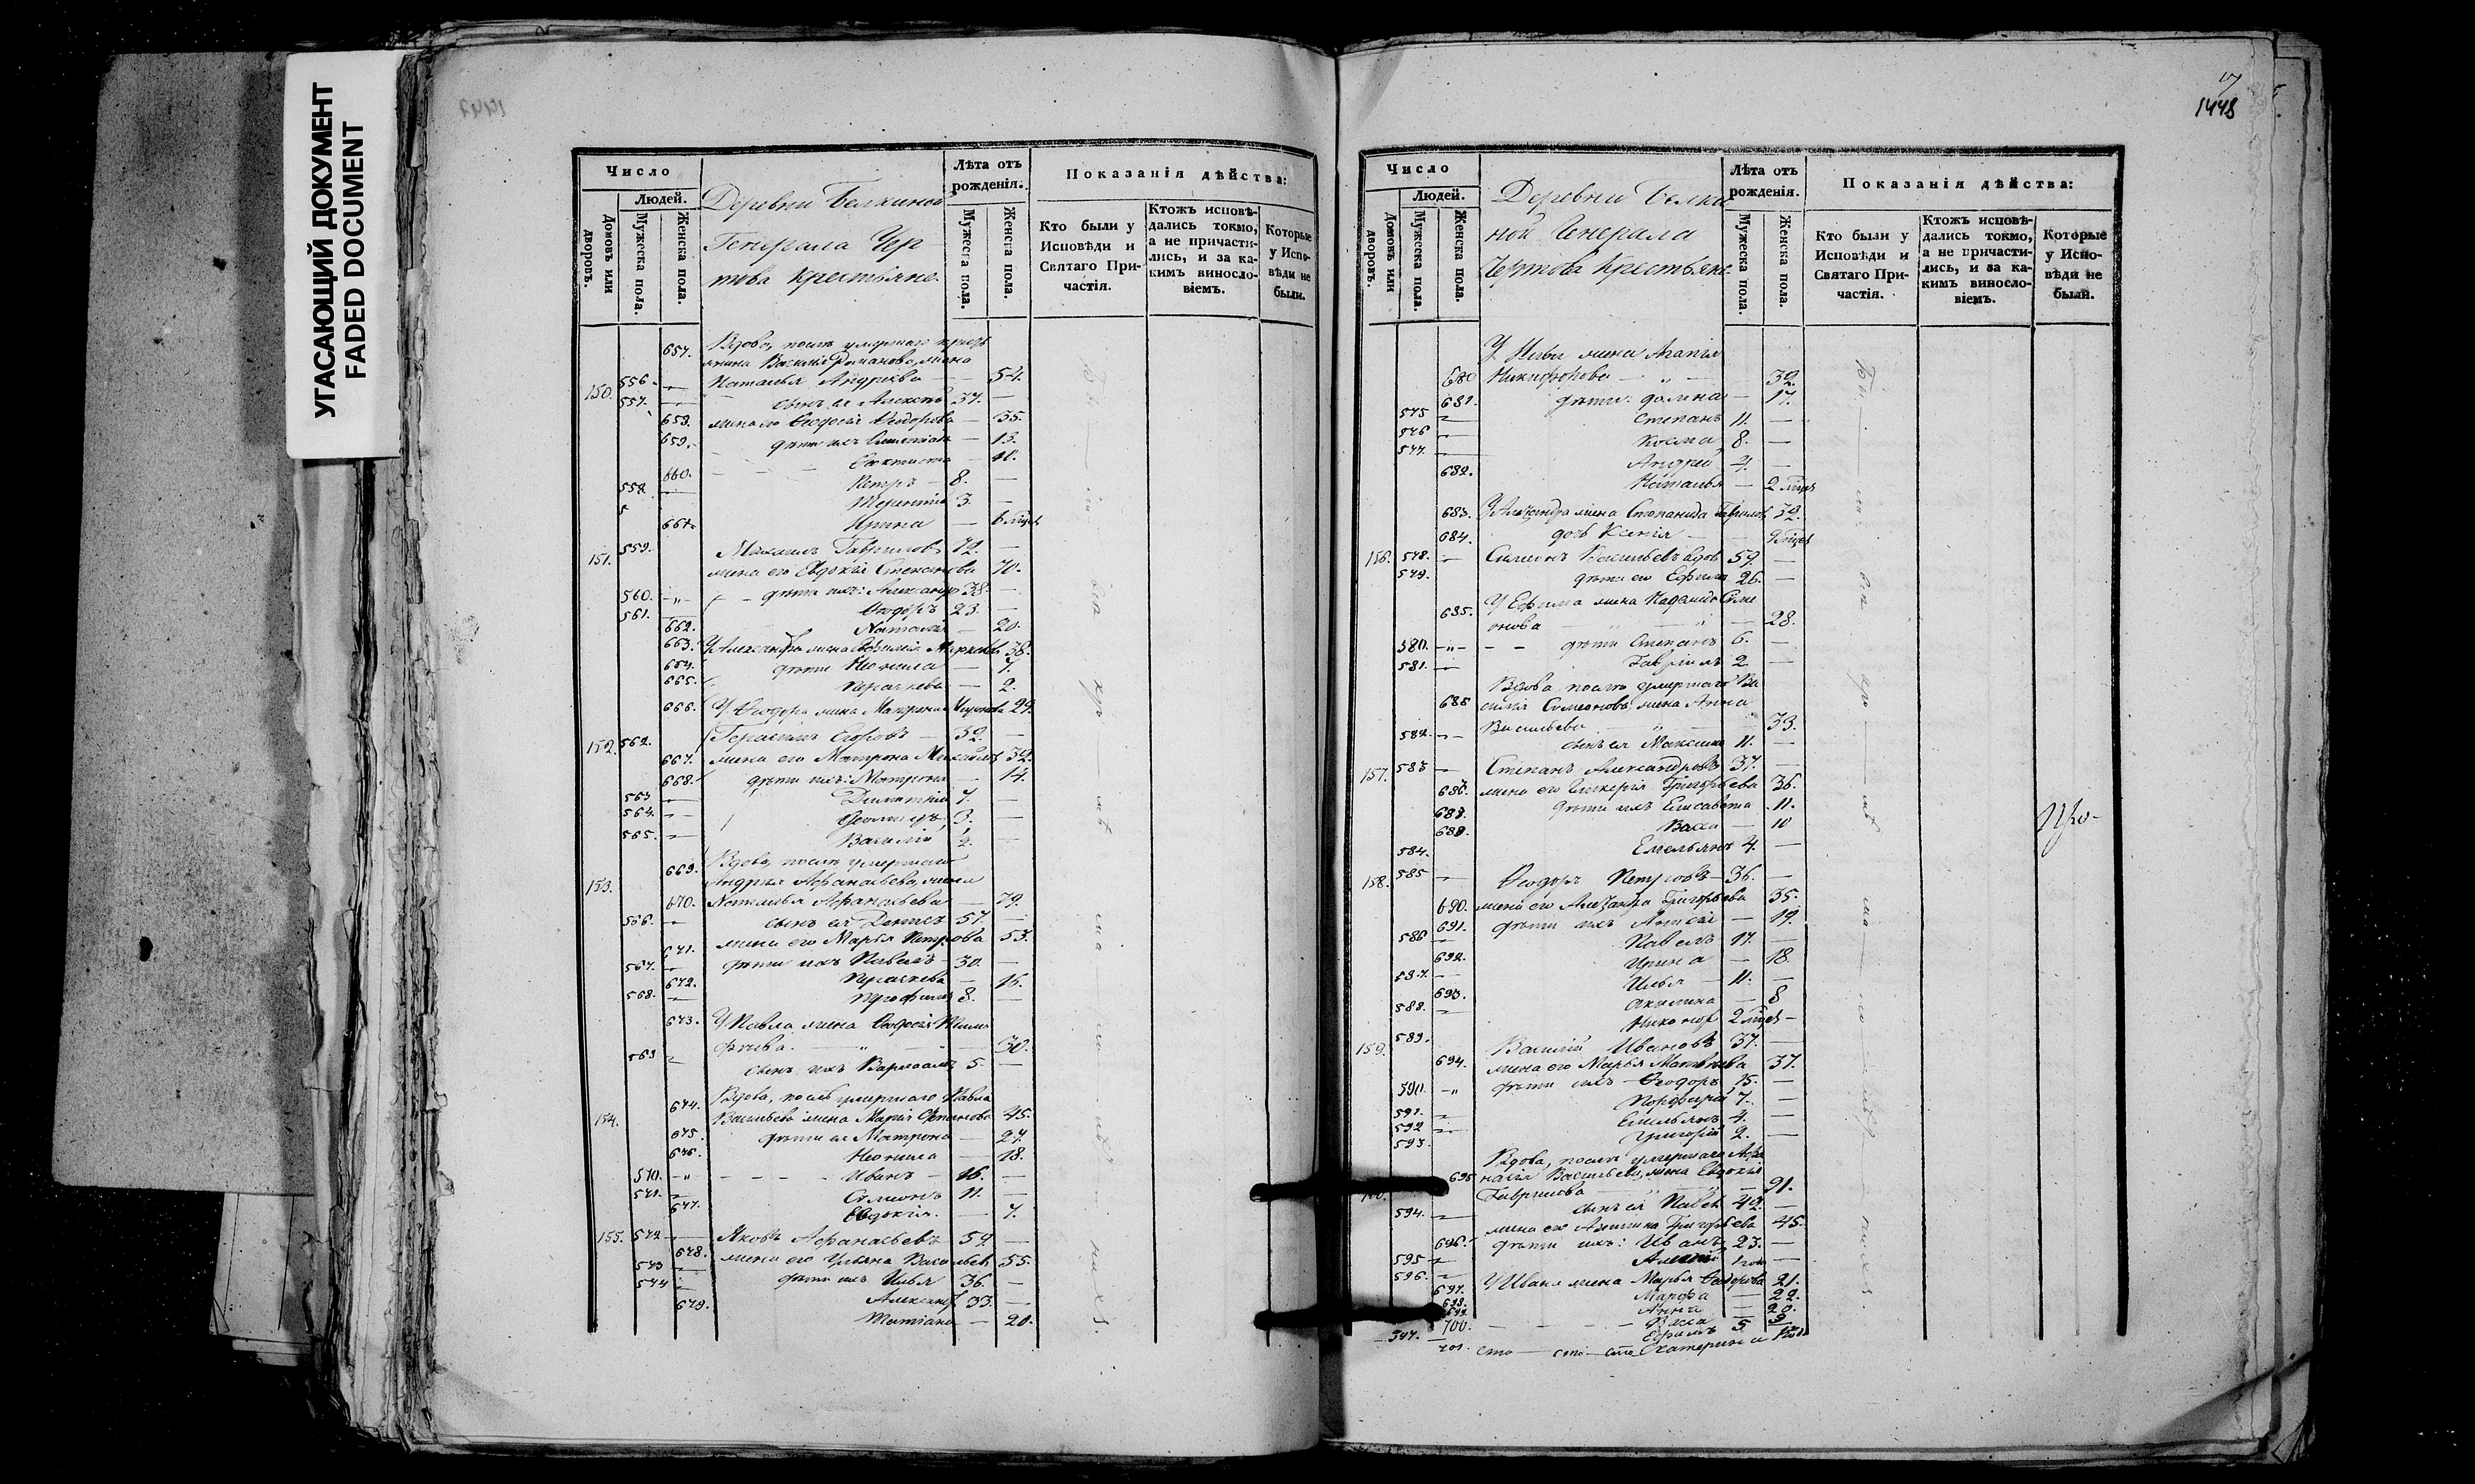 УГАСАЮЩИЙ ДОКУМЕНТ
FADED DOCUMENT
1447
Число
Людей.
Домовъ или дворовъ.
Мужеска пола.
Женска пола.
Деревни Белкиной
Генерала Чер
това Крестьяне.
Лѣта отъ рожденія.
Мужеска пола.
Женска пола.
Показанія дѣйства:
Кто были у Исповѣди и Святаго Причастія.
Ктожъ исповѣдались токмо, а не причастились, и за какимъ винословіемъ.
Которые у Исповѣди не были.
657. Вдова, послѣ умершаго крест
янина Василія Романова, жена
150. 556. Наталья Андреева — 54.
557. сынъ ея Алексѣй 37. —
659. жена его Ѳеодосія Ѳеодорова — 35.
659. дѣти ихъ — 13.
— 10.
660.
558. Петръ — 8. —
Терентій 3. —
661. Ирина — 6 мцвъ
151. 559. Михаилъ Гавриловъ 72. —
жена его Евдокія Степанова 70.
560. дѣти ихъ: Александръ 38. —
561. Ѳеодоръ 23. —
662. Наталія — 20.
663. У Александра жена 38.
664. дѣти Неонила — 7.
665. Параскева — 2.
666. У Ѳеодора жена Матрона 29.
152. 562. Герасимъ Егоровъ — 32. —
667. жена его Матрона Михайлова 32.
668. дѣти ихъ: Матрона — 14.
563. Димитрій 7. —
564. 3. —
565. Василій ½. —
669. Вдова, послѣ умершаго
153. Андрея Афанасьева, жена
670. Наталья Афанасьева — 79.
566. сынъ ея Денисъ 57. —
671. жена его Марья Петрова 53.
567. дѣти ихъ Павелъ — 30. —
672. Параскева — 16.
568. Трофимъ 8. —
673. У Павла жена Ѳеодосія Тимо
фѣева. — 30.
569. сынъ ихъ Варлаамъ 5. —
Вдова, послѣ умершаго Павла
154. 674. Васильева жена Марія Степанова 45.
675. дѣти ея Матрона — 27.
676. Неонила — 18.
570. Иванъ — 16. —
571. Симеонъ 11. —
677. Евдокія. — 7.
155. 572. Яковъ Афанасьевъ 59. —
678. жена его Ульяна Васильев 55.
573. дѣти ихъ Илья 36. —
574. Александръ 33. —
679. Татіана — 20.
17
1448
Число
Людей.
Домовъ или дворовъ.
Мужеска пола.
Женска пола.
Деревни Белки
ной Генерала
Чертова Крестьяне.
Лѣта отъ рожденія.
Мужеска пола.
Женска пола.
Показанія дѣйства:
Кто были у Исповѣди и Святаго Причастія.
Ктожъ исповѣдались токмо, а не причастились, и за какимъ винословіемъ.
Которые у Исповѣди не были.
У Ильи жена Агапія
680 Никифорова — 32.
681. дѣти: — 17.
575 Степанъ 11. —
576 Косма 8. —
577. Андрей 4. —
682. Наталья — 2 мцвъ
683. У Александра жена Степанида Гаврилов 32.
684. дочь Ксенія —
156. 578. Симеонъ Васильевъ вдов 59. —
579. дѣти его Ефимъ 26. —
685. У Ефима жена Симе
онова — 28.
580. дѣти Степанъ 6. —
581. Гавріилъ 2. —
Вдова, послѣ умершаго Ва
686 силія Симеонова, жена Анна
Васильева — 33.
582. сынъ ея Максимъ 11. —
157. 583 Степанъ Александровъ 37. —
жена его Гликерія Григорьева 36.
дѣти ихъ Елисавета — 11.
Васса — 10
584. Емельянъ 4. —
158. 585 Ѳеодоръ Петровъ — 36. —
690. жена его Александра Григорьева 35.
691. дѣти ихъ — 19.
586 Павелъ 17. —
692. Ирина — 18.
587. Илья — 11. —
693. Акилина — 8
588. Никаноръ 2 мцвъ —
159. 589. Василій Ивановъ 37. —
694. жена его Марья Матвѣева 37.
590. дѣти ихъ — Ѳеодоръ 15. —
591. Порфирій 7. —
592 Емельянъ 4. —
593. Григорій 2. —
Вдова, послѣ умершаго Афа
695 насія Васильева, жена Евдокія
160. Гаврилова — 91.
594. сынъ ея Павел —
жена его Акилина Григорьева 45.
696. дѣти ихъ: Иванъ 23. —
595
596. У Ивана жена Марья Ѳеодорова 21.
697. Марфа — 22.
Анна — 20.
700. Васса — 9
Ефимъ 5
597. 701. Екатерина
Про-